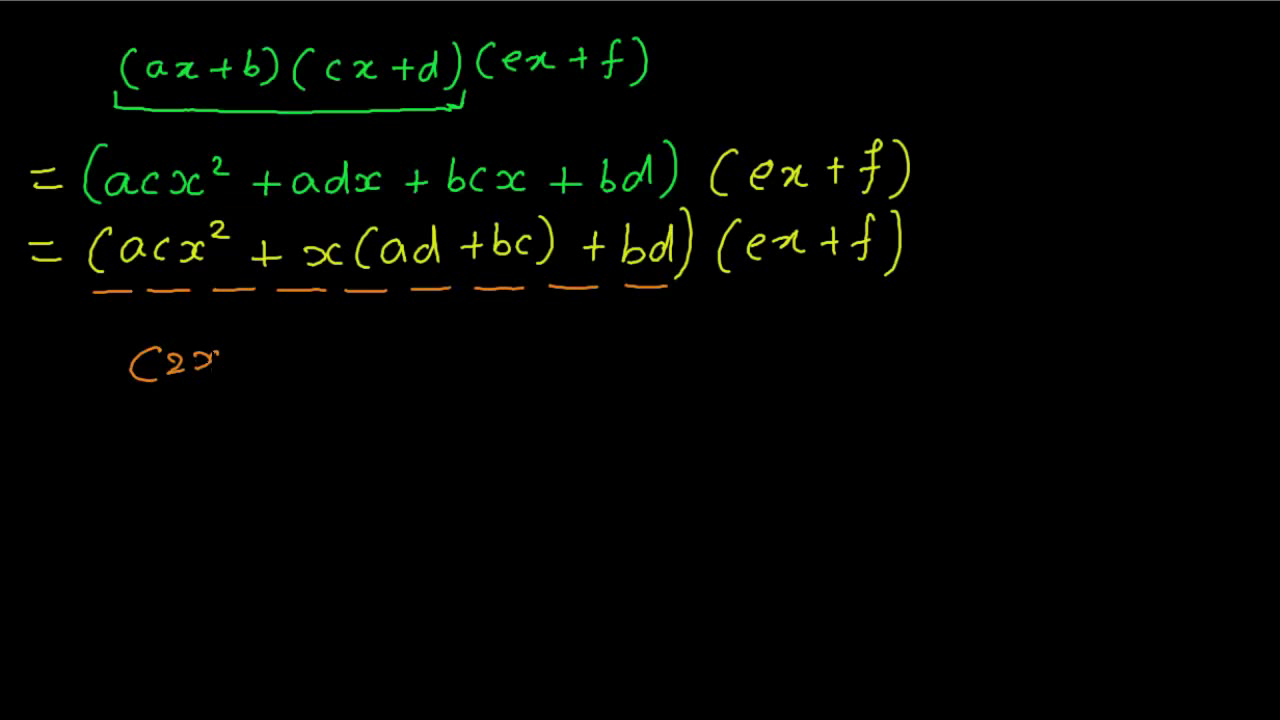 (ax+b)(cx+d)(ex+f)
= (acx² + adx + bcx + bd) (ex+f)
= (acx² + x(ad+bc) + bd) (ex+f)
(2x